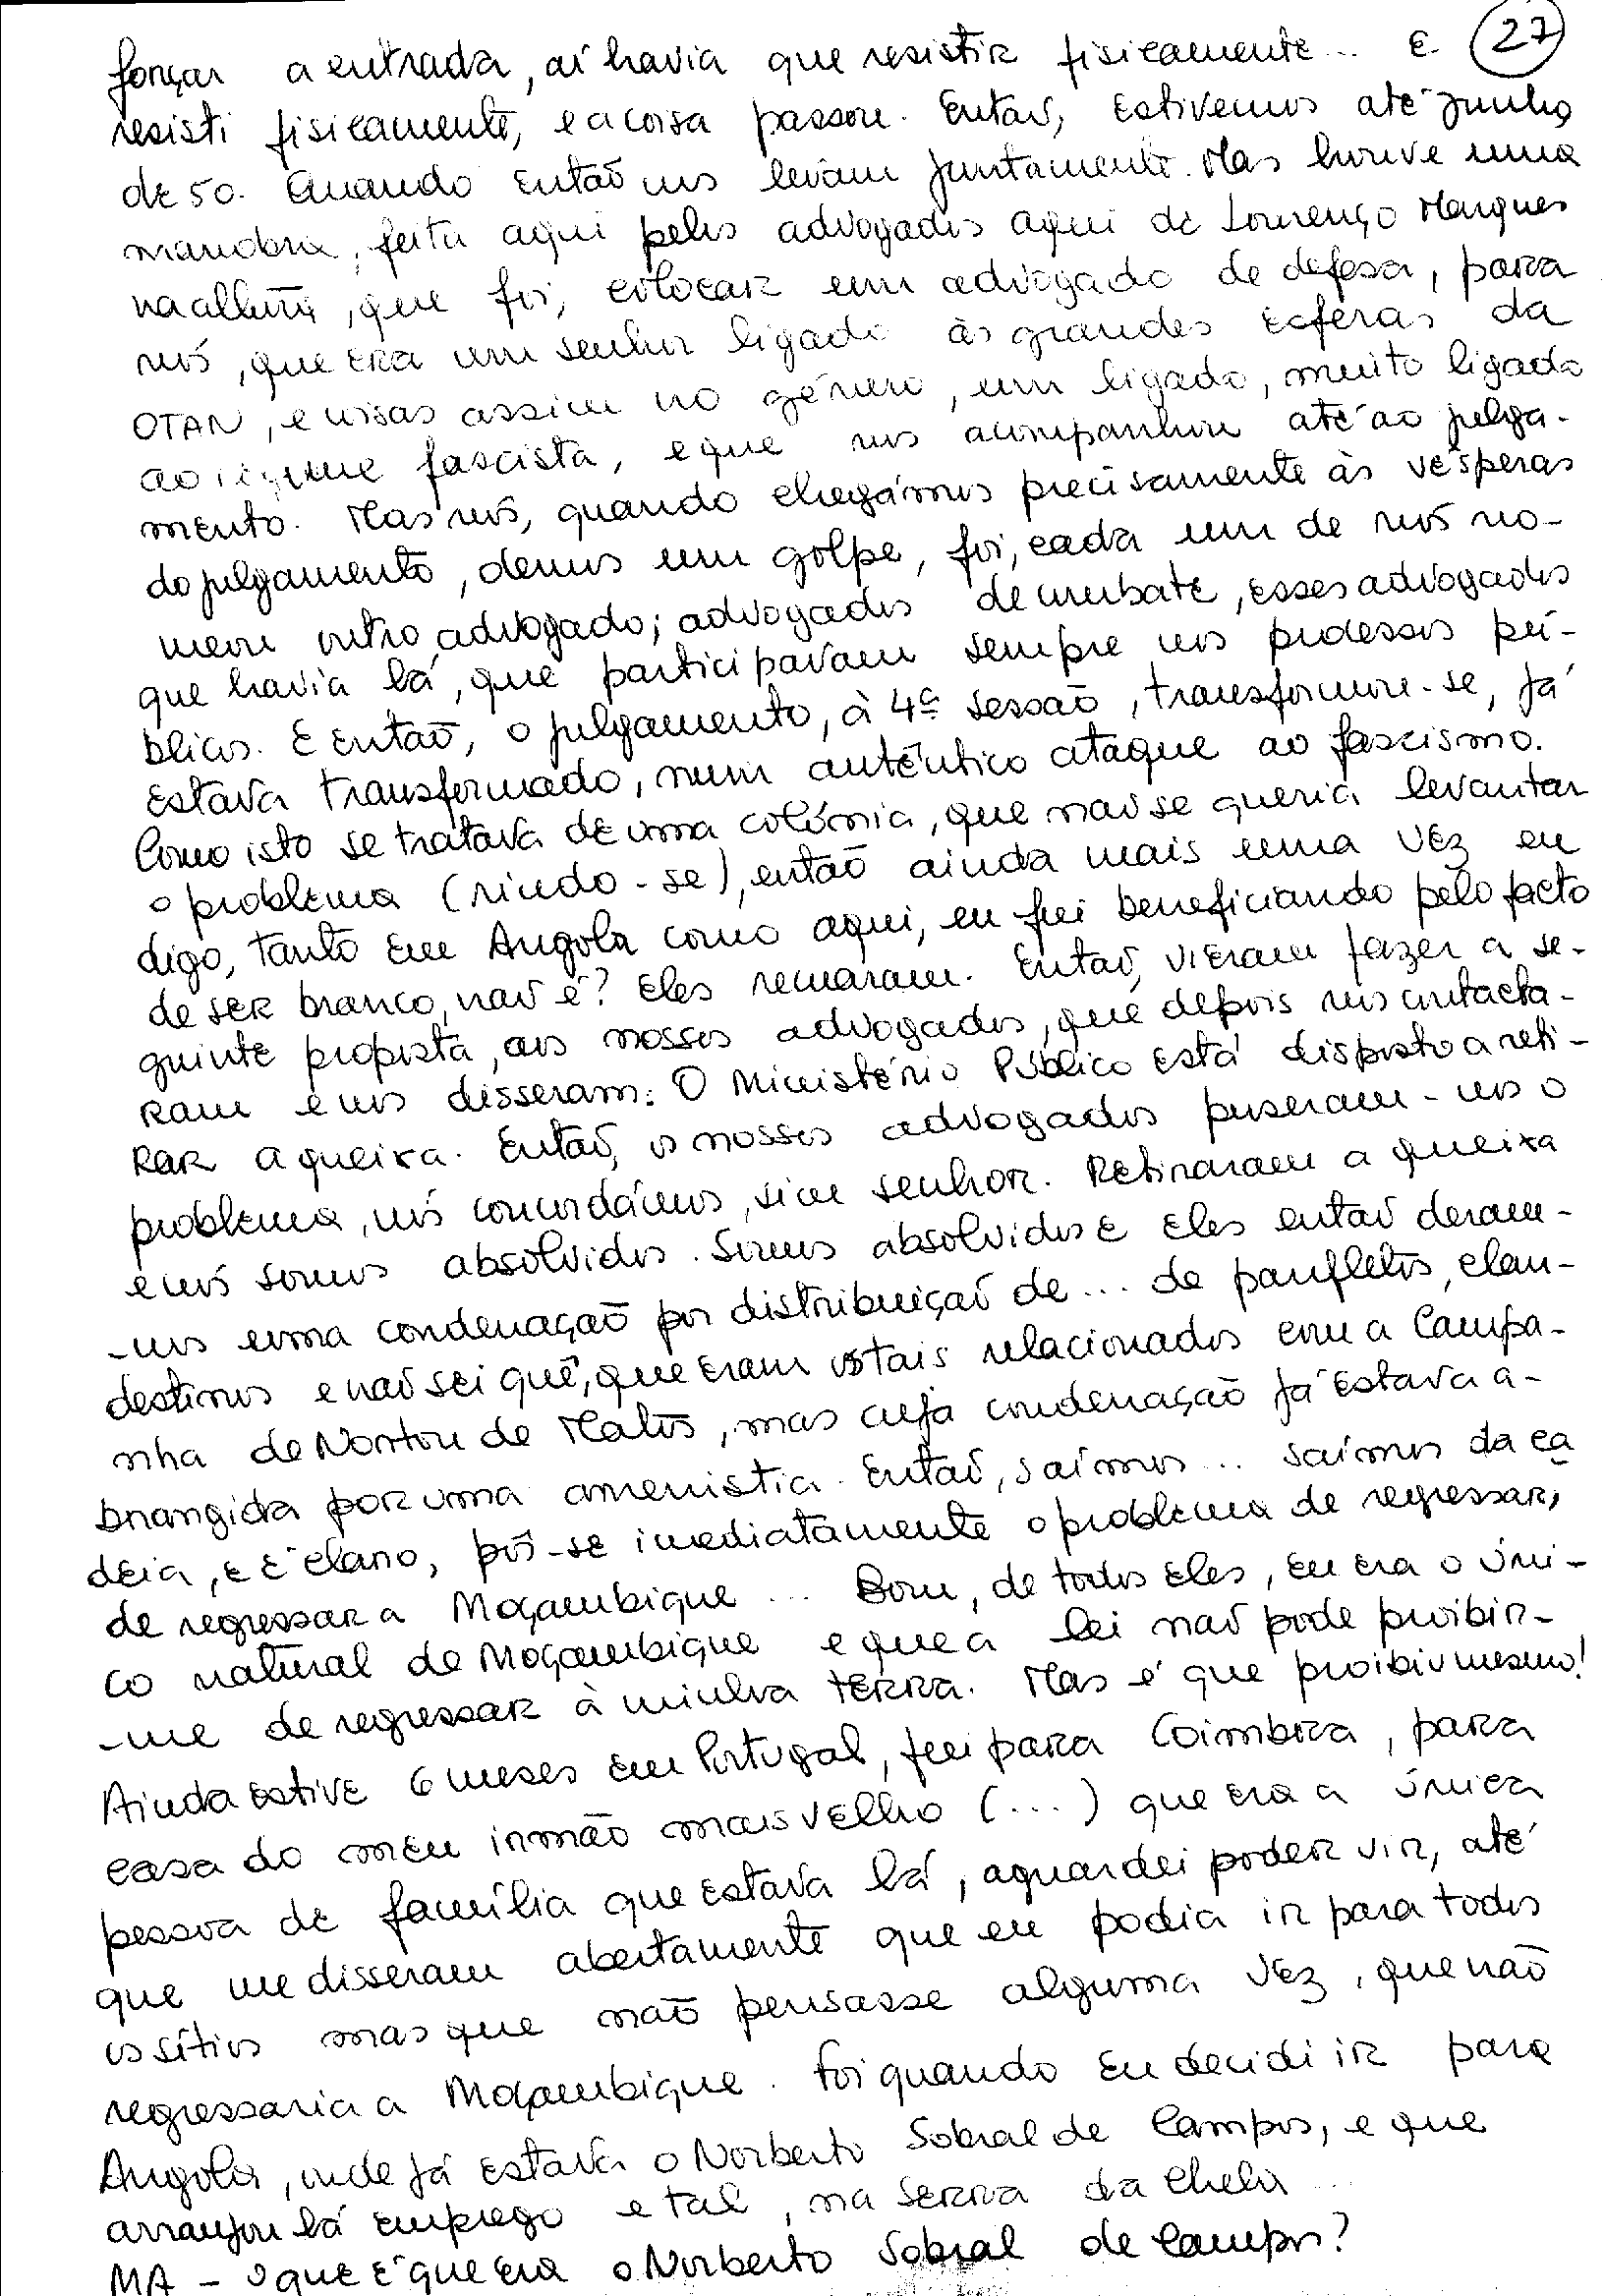 forçar a entrada, aí havia que resistir fisicamente... E (27)
resisti fisicamente, e a coisa passou. Então, estivemos até Junho
de 50. Quando então nos levam juntamente. Mas houve uma
manobra, feita aqui pelos advogados aqui de Lourenço Marques
na altura, que foi, colocar um advogado de defesa, para
nós, que era um senhor ligado às grandes esferas da
OTAN, e coisas assim no género, um ligado, muito ligado
ao regime fascista, e que nos acompanhou até ao julga-
mento. Mas nós, quando chegámos precisamente às vésperas
do julgamento, demos um golpe, foi, cada um de nós no-
meou outro advogado; advogados de combate, esses advogados
que havia lá, que participavam sempre nos processos pú-
blicos. E então, o julgamento, à 4ª sessão, transformou-se, já
estava transformado, num autêntico ataque ao fascismo.
Como isto se tratava de uma colónia, que não se queria levantar
o problema (rindo-se), então ainda mais uma vez eu
digo, tanto em Angola como aqui, eu fui beneficiando pelo facto
de ser branco, não é? Eles remaram. Então, vieram fazer a se-
guinte proposta, aos nossos advogados, que depois nos contacta-
ram e nos disseram: O Ministério Público está disposto a reti-
rar a queixa. Então, os nossos advogados puseram-nos o
problema, nós concordámos, sim senhor. Retiraram a queixa
e nós somos absolvidos. Somos absolvidos e eles então deram-
-nos uma condenação por distribuição de... de panfletos, clan-
destinos e não sei quê, que eram os tais relacionados com a Campa-
nha de Norton de Matos, mas cuja condenação já estava a-
brangida por uma amenistia. Então, saímos... saímos da ca
deia, e é claro, pôs-se imediatamente o problema de regressar,
de regressar a Moçambique... Bom, de todos eles, eu era o úni-
co natural de Moçambique e que a lei não pode proibir-
-me de regressar à minha terra. Mas é que proibiu mesmo!
Ainda estive 6 meses em Portugal, fui para Coimbra, para
casa do meu irmão mais velho (...) que era a única
pessoa de família que estava lá, aguardei poder vir, até
que me disseram abertamente que eu podia ir para todos
os sítios mas que não pensasse alguma vez, que não
regressaria a Moçambique. Foi quando eu decidi ir para
Angola, onde já estava o Norberto Sobral de Campos, e que
arranjou lá emprego e tal, na serra da Chela...
MA - O que é que era o Norberto Sobral de Campos?